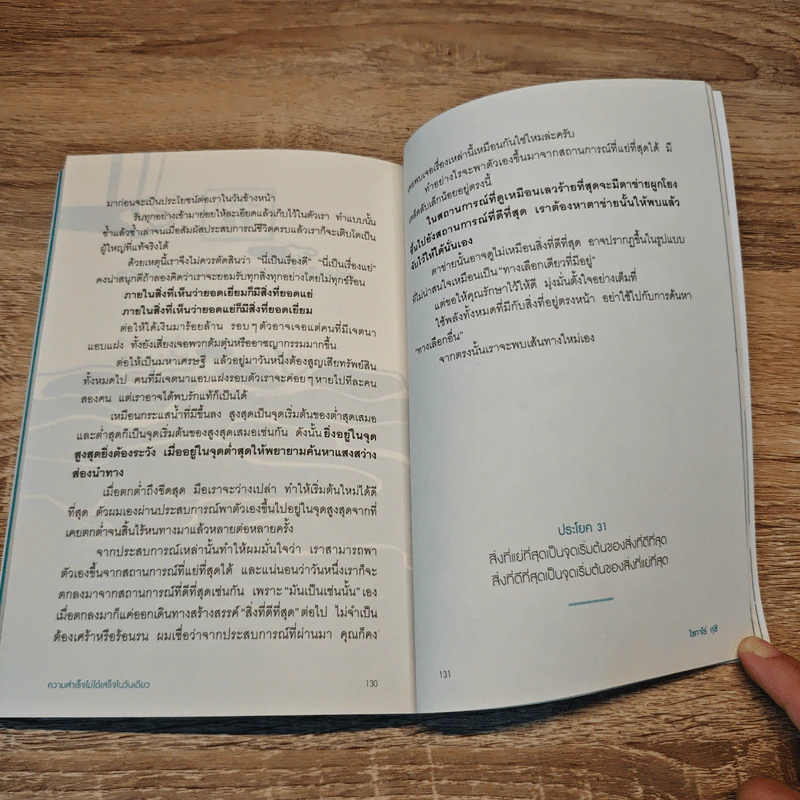 มาก่อนจะเป็นประโยชน์ต่อเราในวันข้างหน้า
รับทุกอย่างเข้ามาย่อยให้ละเอียดแล้วเก็บไว้ในตัวเรา ทำแบบนั้น
ซ้ำแล้วซ้ำเล่าจนเมื่อสัมผัสประสบการณ์ชีวิตครบแล้วเราก็จะเติบโตเป็น
ผู้ใหญ่ที่แท้จริงได้
ด้วยเหตุนี้เราจึงไม่ควรตัดสินว่า “นี่เป็นเรื่องดี” “นี่เป็นเรื่องแย่”
คงน่าสนุกดีถ้าลองคิดว่าเราจะยอมรับทุกสิ่งทุกอย่างโดยไม่ทุกข์ร้อน
ภายในสิ่งที่เห็นว่ายอดเยี่ยมก็มีสิ่งที่ยอดแย่
ภายในสิ่งที่เห็นว่ายอดแย่ก็มีสิ่งที่ยอดเยี่ยม
ต่อให้ได้เงินมาร้อยล้าน รอบๆ ตัวอาจเจอแต่คนที่มีเจตนา
แอบแฝง ทั้งยังเสี่ยงเจอพวกต้มตุ๋นหรืออาชญากรรมมากขึ้น
ต่อให้เป็นมหาเศรษฐี แล้วอยู่มาวันหนึ่งต้องสูญเสียทรัพย์สิน
ทั้งหมดไป คนที่มีเจตนาแอบแฝงรอบตัวเราจะค่อยๆ หายไปทีละคน
สองคน แต่เราอาจได้พบรักแท้ก็เป็นได้
เหมือนกระแสน้ำที่มีขึ้นลง สูงสุดเป็นจุดเริ่มต้นของต่ำสุดเสมอ
และต่ำสุดก็เป็นจุดเริ่มต้นของสูงสุดเสมอเช่นกัน ดังนั้นยิ่งอยู่ในจุด
สูงสุดยิ่งต้องระวัง เมื่ออยู่ในจุดต่ำสุดให้พยายามค้นหาแสงสว่าง
ส่องนำทาง
เมื่อตกต่ำถึงขีดสุด มือเราจะว่างเปล่า ทำให้เริ่มต้นใหม่ได้ดี
ที่สุด ตัวผมเองผ่านประสบการณ์พาตัวเองขึ้นไปอยู่ในจุดสูงสุดจากที่
เคยตกต่ำจนสิ้นไร้หนทางมาแล้วหลายต่อหลายครั้ง
จากประสบการณ์เหล่านั้นทำให้ผมมั่นใจว่า เราสามารถพา
ตัวเองขึ้นจากสถานการณ์ที่แย่ที่สุดได้ และแน่นอนว่าวันหนึ่งเราก็จะ
ตกลงมาจากสถานการณ์ที่ดีที่สุดเช่นกัน เพราะ “มันเป็นเช่นนั้น” เอง
เมื่อตกลงมาก็แค่ออกเดินทางสร้างสรรค์ “สิ่งที่ดีที่สุด” ต่อไป ไม่จำเป็น
ต้องเศร้าหรือร้อนรน ผมเชื่อว่าจากประสบการณ์ที่ผ่านมา คุณก็คง
ความสำเร็จไม่ได้เสร็จในวันเดียว
130
เคยพบเจอเรื่องเหล่านี้เหมือนกันใช่ไหมล่ะครับ
ทำอย่างไรจะพาตัวเองขึ้นมาจากสถานการณ์ที่แย่ที่สุดได้ มี
เคล็ดลับเล็กน้อยอยู่ตรงนี้
ในสถานการณ์ที่ดูเหมือนเลวร้ายที่สุดจะมีตาข่ายผูกโยง
ขึ้นไปยังสถานการณ์ที่ดีที่สุด เราต้องหาตาข่ายนั้นให้พบแล้ว
จับไว้ให้ได้นั่นเอง
ตาข่ายนั้นอาจดูไม่เหมือนสิ่งที่ดีที่สุด อาจปรากฏขึ้นในรูปแบบ
ที่ไม่น่าสนใจเหมือนเป็น “ทางเลือกเดียวที่มีอยู่”
แต่ขอให้คุณรักษาไว้ให้ดี มุ่งมั่นตั้งใจอย่างเต็มที่
ใช้พลังทั้งหมดที่มีกับสิ่งที่อยู่ตรงหน้า อย่าใช้ไปกับการค้นหา
“ทางเลือกอื่น”
จากตรงนั้นเราจะพบเส้นทางใหม่เอง
ประโยค 31
สิ่งที่แย่ที่สุดเป็นจุดเริ่มต้นของสิ่งที่ดีที่สุด
สิ่งที่ดีที่สุดเป็นจุดเริ่มต้นของสิ่งที่แย่ที่สุด
131